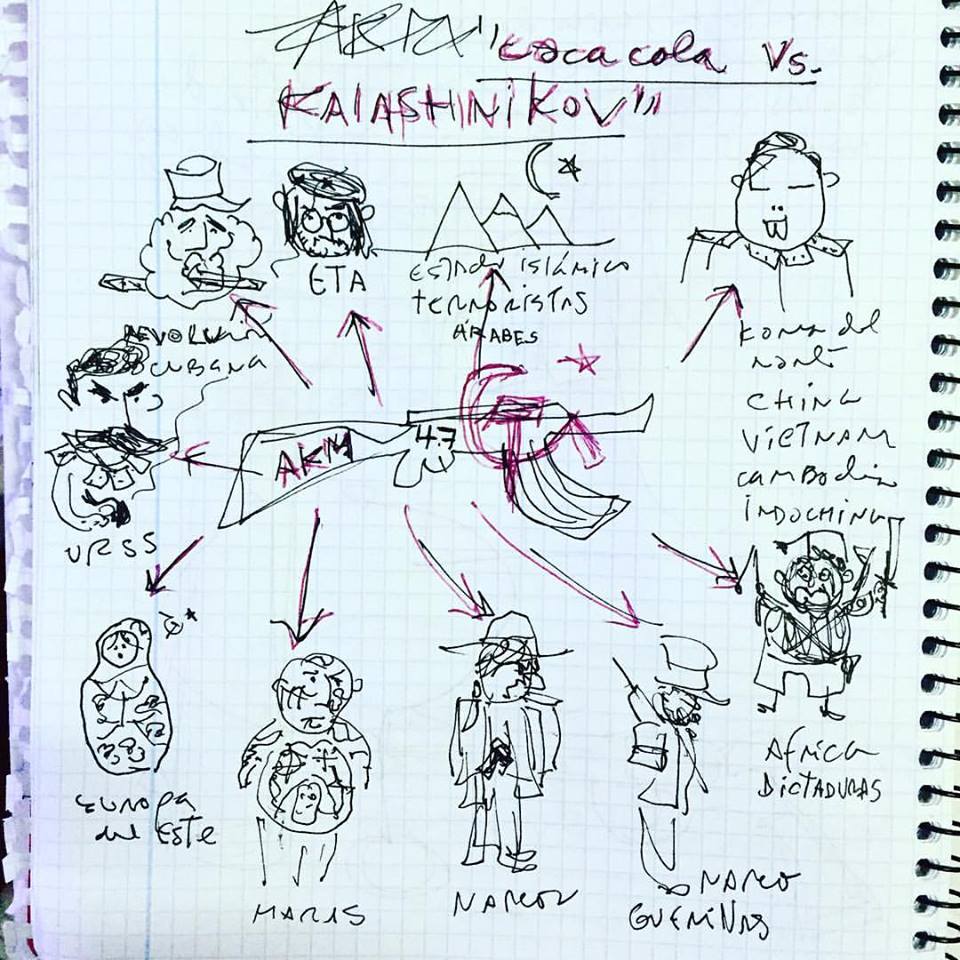 "Coca cola Vs.
KALASHNIKOV"
ETA
Estado islámico
terroristas
ÁRABES
REVOLUCIÓN
CUBANA
Korea del
norte
CHINA
VIETNAM
Cambodia
INDOCHINA
AKM
47
URSS
EUROPA
del Este
MARAS
NARCOS
NARCO
GUERILLAS
Africa
DICTADURAS